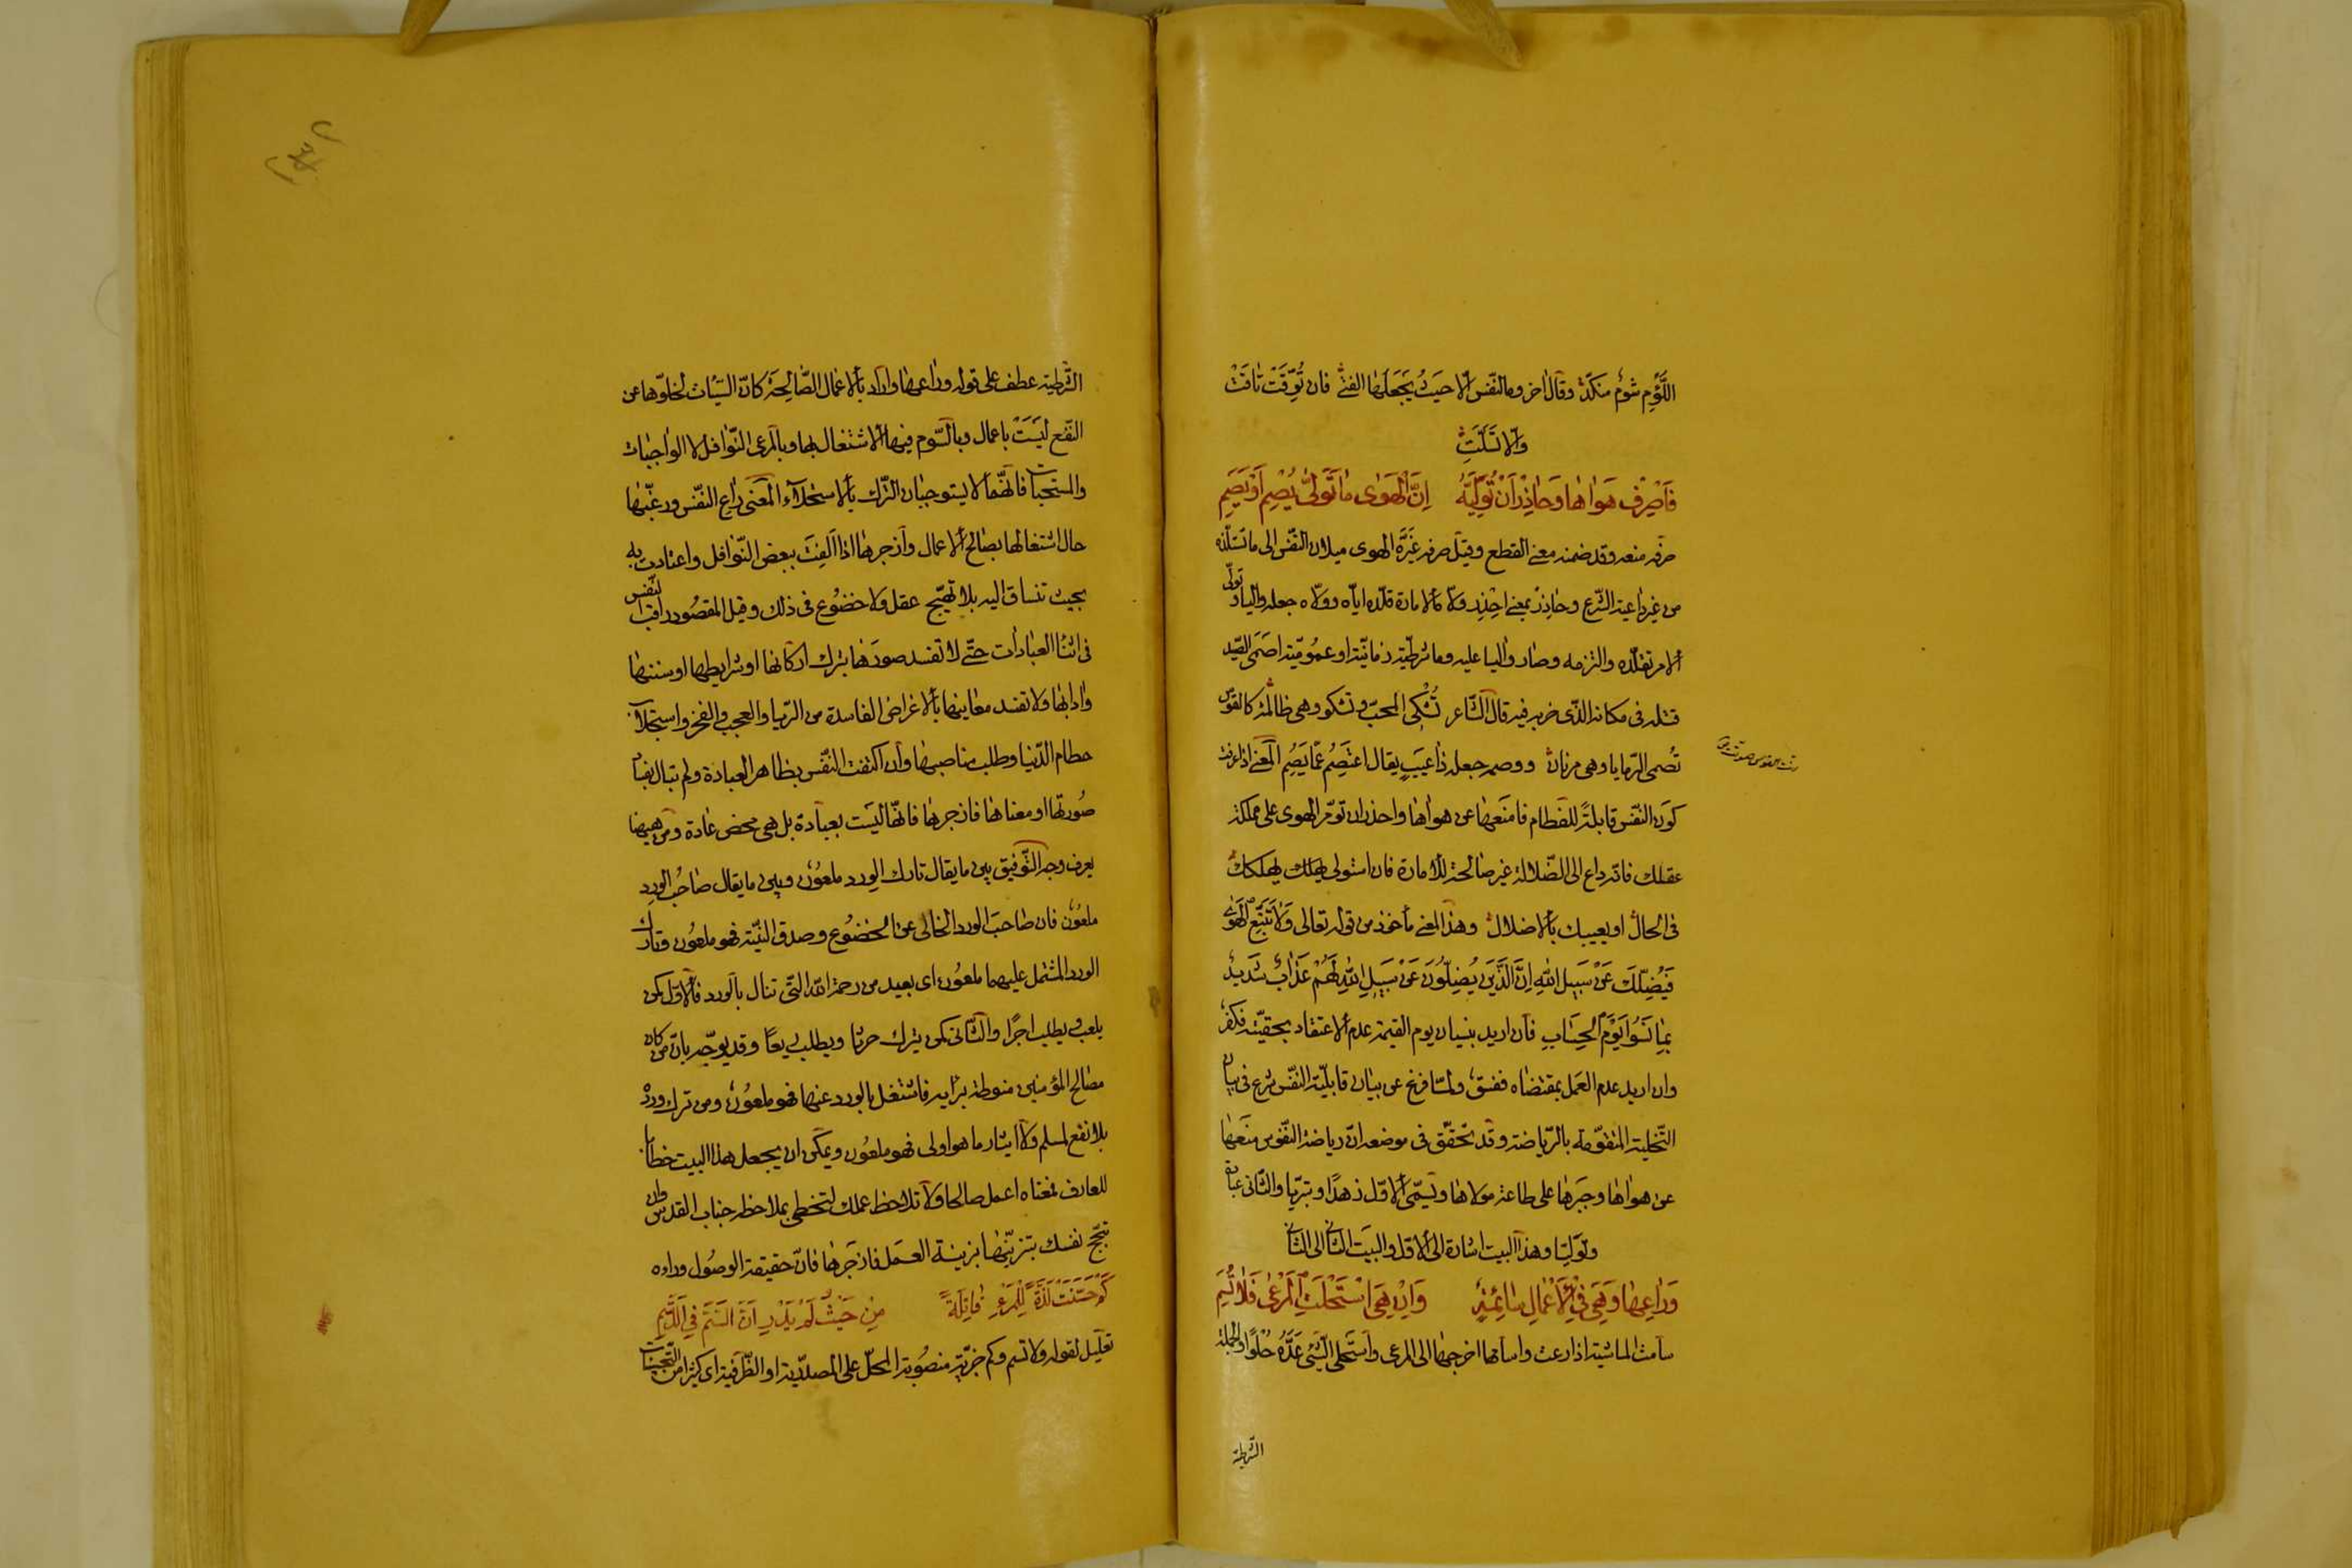 اللّؤم شوم منكدّ وقال اخر وما النّفس الّا حيث يجعلها الفتى فان توّقت تاقت
والّا تسلّت
فَاصْرِفْ هَوَاهَا وَحَاذِرْ اَنْ تُوَلِّيَهُ اِنَّ الْهَوٰى مَا تَوَلّٰى يُصْمِ اَوْ يَصِمِ
صرفه منعه وقد ضمنه معنى القطع وقيل صرفه غيّره الهوى ميلان النّفس الى ما تستلذه
من غير داعية الشّرع وحاذر بمعنى احذر وولّاه الامارة قلّده ايّاه وولّاه جعله واليا وتولّى
الامر تقلّده والتزمه وصار واليا عليه وما شرطيّة زمانيّة او عموميّة اصمى الصّيد
قتله فى مكانه الذّى ضربه فيه قال الشّاعر تُشكى المحبّ وتشكو وهى ظالمة كالقوس
تُصمى الرّمايا وهى مرنان ووصمه جعله ذا عيب يقال اعتصم عمّا يصم المعنى اذا عرفت
كون النّفس قابلة للفطام فامنعها عن هواها واحذر ان تؤمّر الهوى على مملكة
عقلك فانّه داع الى الضّلالة غير صالحة للامارة فان استولى يهلك يهلكك
فى الحال او يعيبك بالاضلال وهذا المعنى مأخوذ من قوله تعالى وَلَا تَتَّبِعِ الْهَوٰى
فَيُضِلَّكَ عَنْ سَبِيلِ اللّٰهِ اِنَّ الَّذِينَ يُضِلُّونَ عَنْ سَبِيلِ اللّٰهِ لَهُمْ عَذَابٌ شَدِيدٌ
بِمَا نَسُوا يَوْمَ الْحِسَابِ فان اريد بنسيان يوم القيمة عدم الاعتقاد بحقيّته فكفر
وان اريد عدم العمل بمقتضاه ففسق ولمّا فرغ عن بيان قابليّة النّفس شرع فى بيان
التّخلية المتقوّمة بالرّياضة وقد تحقّق فى موضعه انّ رياضة النّفوس منعها
عن هواها وجبرها على طاعة مولاها ويسمّى الاوّل زهدا وتبرّيا والثّانى عبادة
وتولّيا وهذا البيت اشارة الى الاوّل والبيت الثّانى الى الثّانى
وَرَاعِهَا وَهِيَ فِي الْاَعْمَالِ سَائِمَةٌ وَاِنْ هِيَ اسْتَحْلَتِ الْمَرْعٰى فَلَا تُسِمِ
سامت الماشية اذا رعت واسامها اخرجها الى المرعى واستحلى الشّئ عدّه حلوا والجملة
الشرطية
الشّرطية عطف على قوله وراعها واراد بالاعمال الصّالحة كانّ السّيّئات لخلوّها عن
النّفع ليست باعمال وبالسّوم فيها الاشتغال بها وبالمرعى النّوافل لا الواجبات
والمستحبات فانّهما لا يستوجبان التّرك بالاستحلاء المعنى راع النّفس ورغّبها
حال اشتغالها بصالح الاعمال وازجرها اذا الفت ببعض النّوافل واعتادت به
بحيث تنساق اليه بلا تهيّج عقل ولا خضوع فى ذلك وقيل المقصود راقب النّفس
فى اثناء العبادات حتّى لا تفسد صورها بترك اركانها او شرايطها او سننها
وادابها ولا تفسد معانيها بالاغراض الفاسدة من الرّيا والعجب والفخر واستجلاب
حطام الدّنيا وطلب مناصبها وان اكتفت النّفس بظاهر العبادة ولم تبال بفساد
صورتها او معناها فازجرها فانّها ليست بعبادة بل هى محض عادة ومن ههنا
يعرف وجه التّوفيق بين ما يقال تارك الورد ملعون وبين ما يقال صاحب الورد
ملعون فان صاحب الورد الخالى عن الخضوع وصدق النّيّة فهو ملعون وتارك
الورد المشتمل عليهما ملعون اى بعيد من رحمة اللّه التّى تنال بالورد فالاوّل كمن
يلعب ويطلب اجرا والثّانى كمن يترك حرثا ويطلب ريعا وقد يوجّه بانّ من كان
مصالح المؤمنين منوطة برأيه فاشتغل بالورد عنها فهو ملعون ومن ترك ورده
بلا نفع لمسلم ولا ايثار ما هو اولى فهو ملعون ويمكن ان يجعل هذا البيت خطابا
للعارف فمعناه اعمل صالحا ولا تلاحظ عملك لتحظى بملاحظة جناب القدس وان
تبجّح نفسك بتزيّنها بزينة العمل فازجرها فانّ حقيقة الوصول وراءه
كَمْ حَسَّنَتْ لَذَّةً لِلْمَرْءِ قَاتِلَةً مِنْ حَيْثُ لَمْ يَدْرِ اَنَّ السَّمَّ فِي الدَّسَمِ
تعليل لقوله ولا تسم وكم خبريّة منصوبة المحلّ على المصدريّة او الظّرفية اى كثيرا من